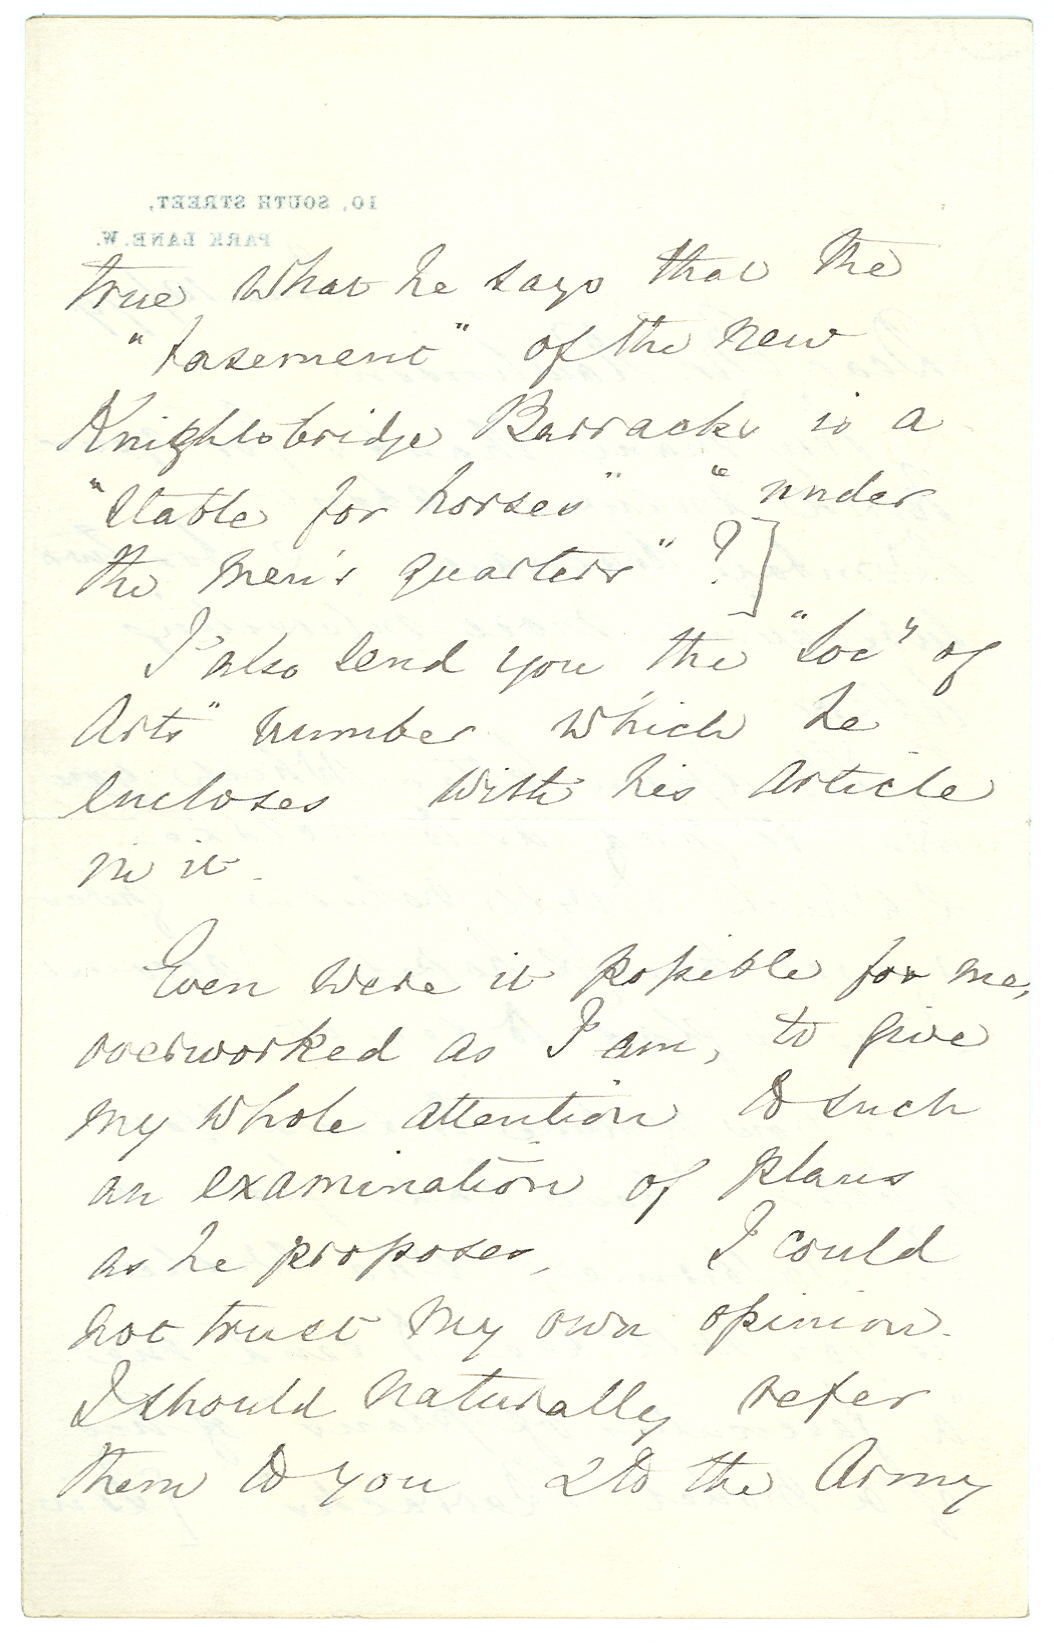 10, SOUTH STREET,
PARK LANE. W.
true what he says that the
"basement" of the new
Knightsbridge Barracks is a
"stable for horses" "under
the men's quarters"?]
I also send you the "Soc" of
Arts" number which he
encloses with his article
in it.
Even were it possible for me,
overworked as I am, to give
my whole attention to such
an examination of plans
as he proposes, I could
not trust my own opinion.
I should naturally refer
them to you & to the Army